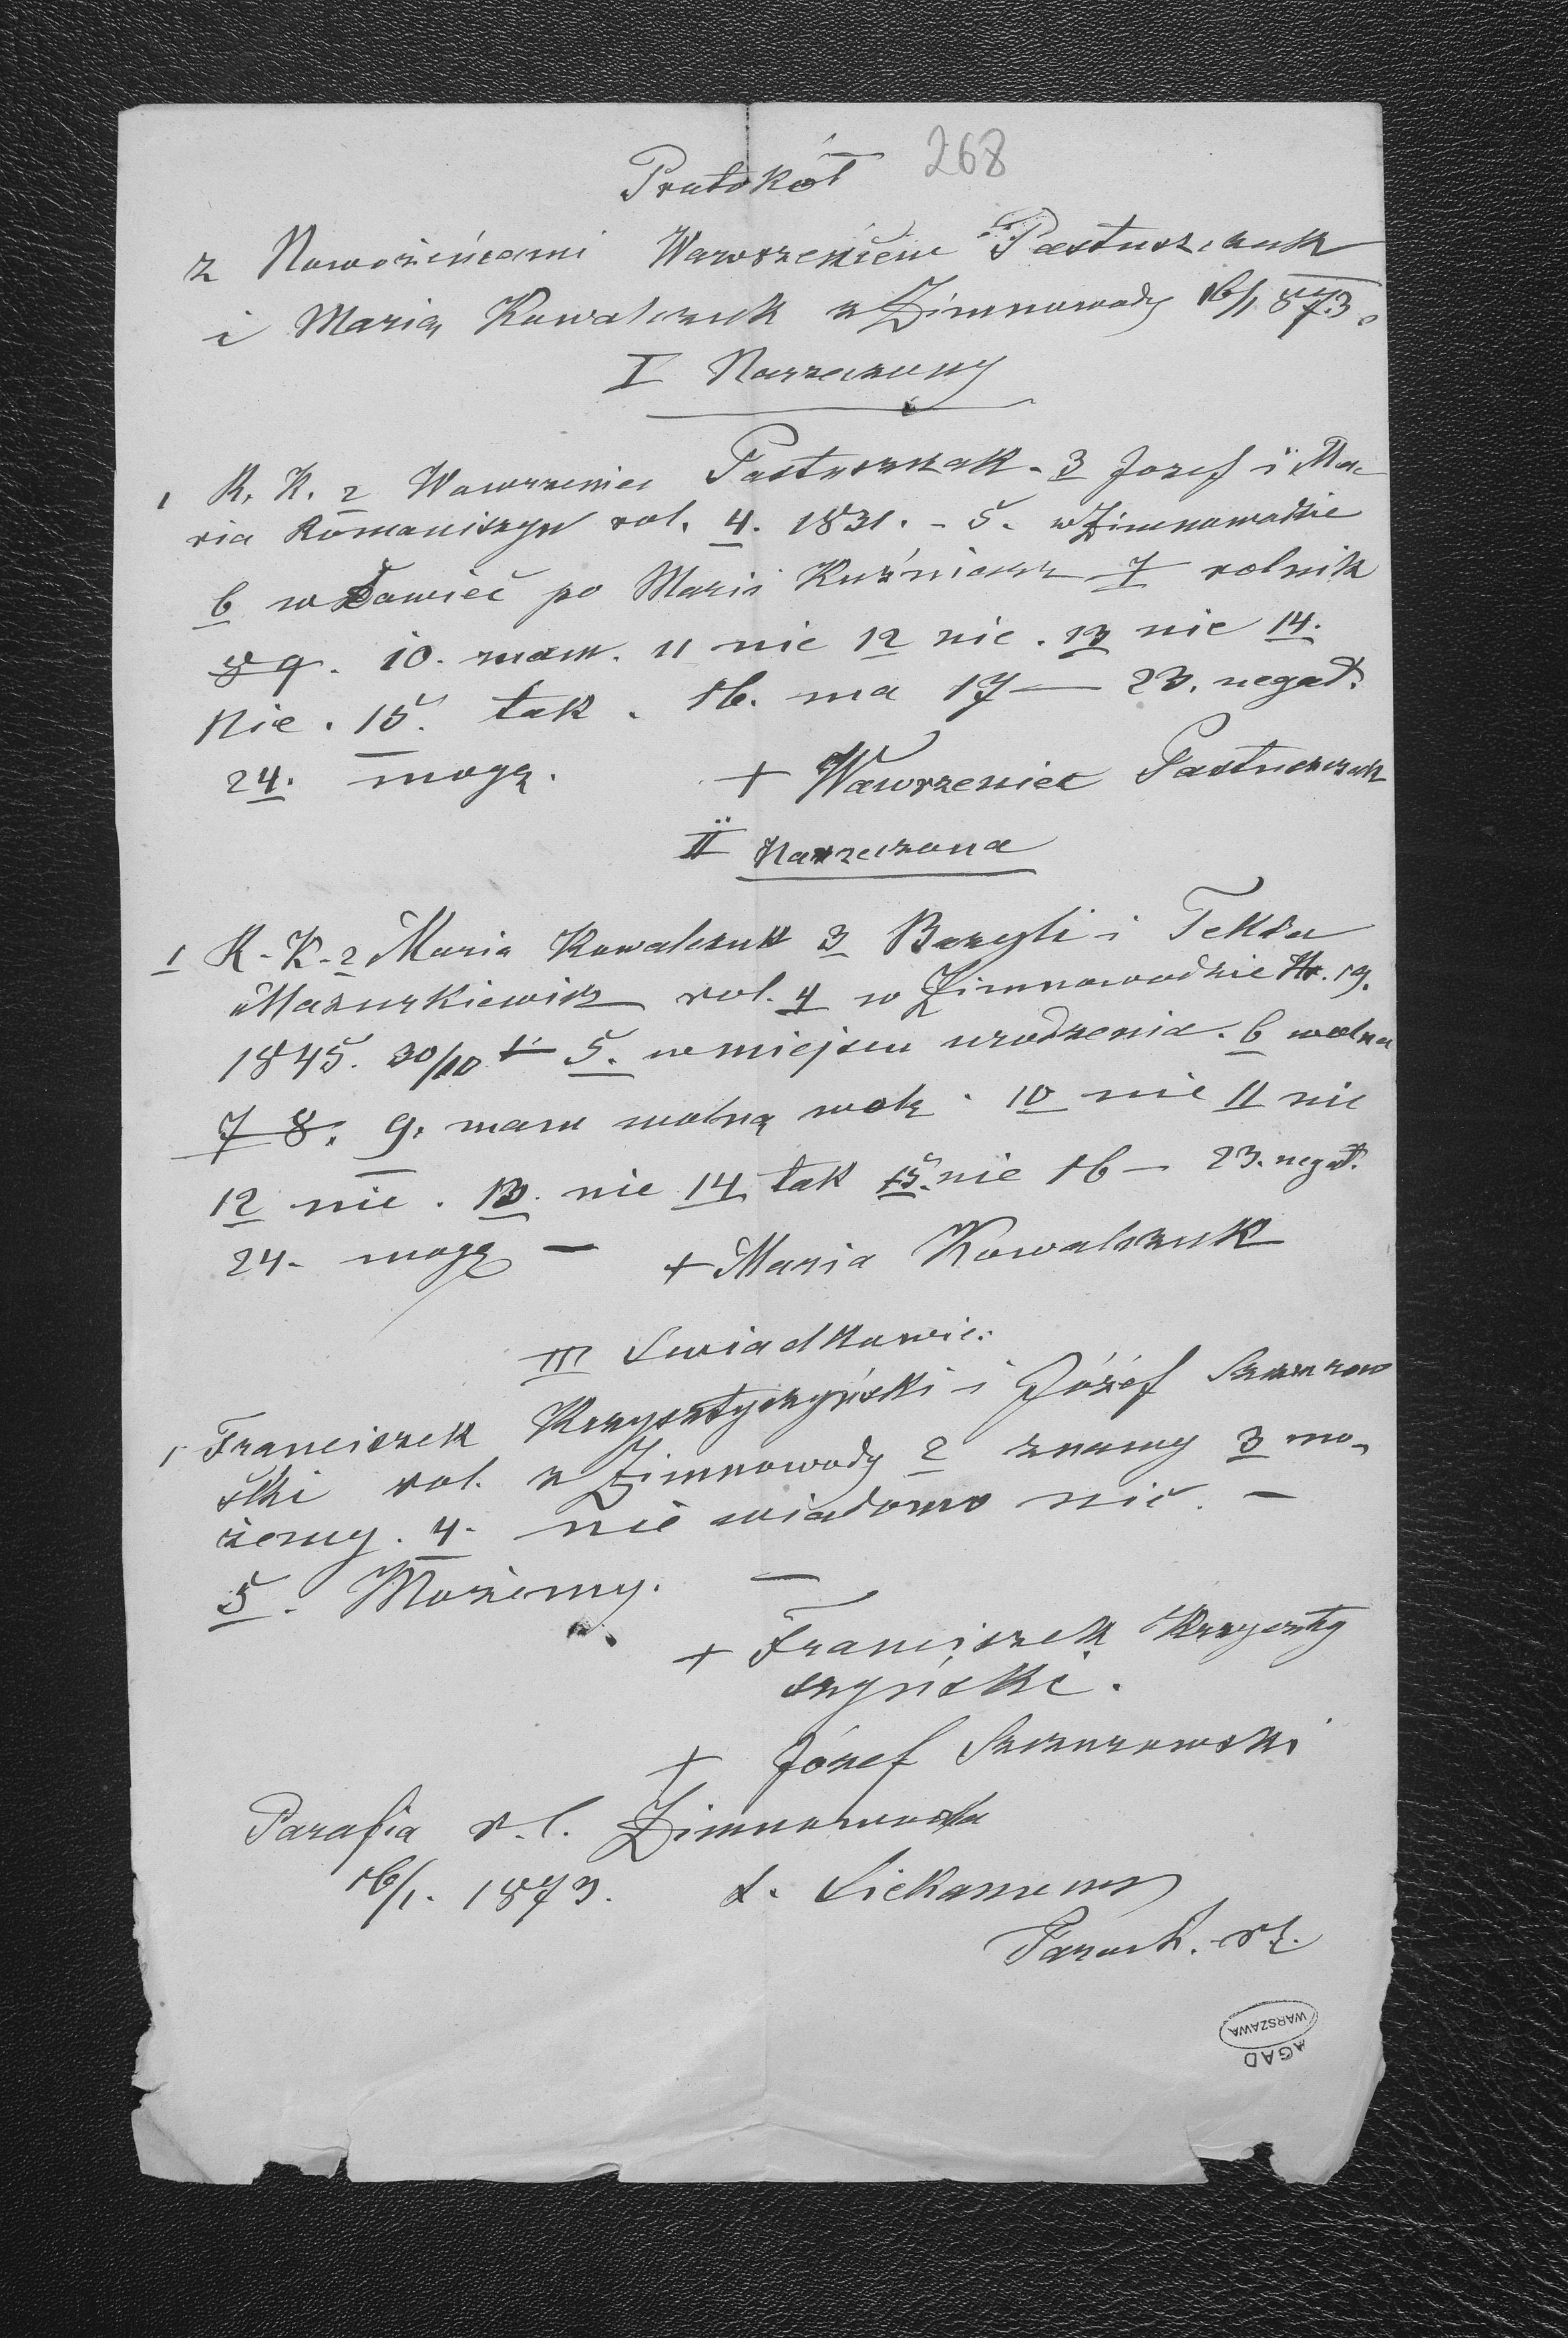 268
Protokół
z Nowożeńcami Wawrzeńcem Pastuszczuk
i Marią Kowalczuk z Zimnowody 16/1 873.
I Narzeczony
1 R. K. 2 Wawrzeniec Pastuszczak - 3 Jozef i Ma-
ria Romaniszyn rol. 4. 1831. - 5. w Zimnowodzie
6 wdowiec po Marii Kuźniarz 7 rolnik
8 9. 10. mam. 11 nie 12 nie. 13 nie 14.
nie. 15. tak. 16. ma 17 — 23. negat.
24. mogę. + Wawrzeniec Pastuszczuk
II Narzeczona
1 R. K. 2 Maria Kowalczuk 3 Bazyli i Tekla
Mazurkiewicz rol. 4 w Zimnowodzie Nr. 19.
1845. 30/10 5. w miejscu urodzenia. 6 wolna
7 8. 9. mam wolną wolę. 10 nie 11 nie
12 nie. 13. nie 14 tak 15. nie 16 — 23. negat.
24. mogę — + Maria Kowalczuk
III Swiadkowie:
1 Franciszek Krzysztyszyński i Józef Szczurow
ski rol. z Zimnowody 2 znamy 3 mo-
żemy. 4. nie wiadomo nic. —
5. Możemy. —
+ Franciszek Krzyszty
szyński.
+ Józef Szczurowski
Parafia r. l. Zimnowoda
16/1. 1873.
Paroch. r. l.
WARSZAWA
AGAD